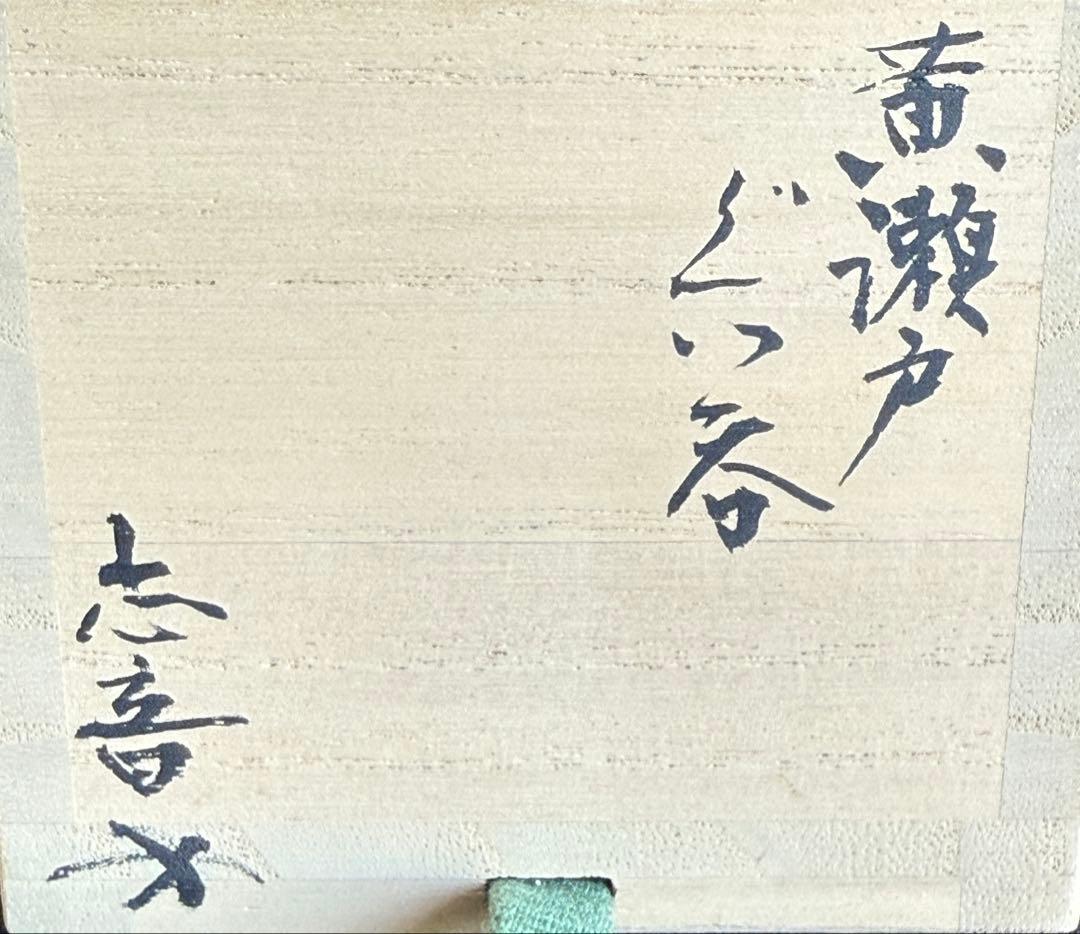 黄瀬戸
ぐい呑
志音